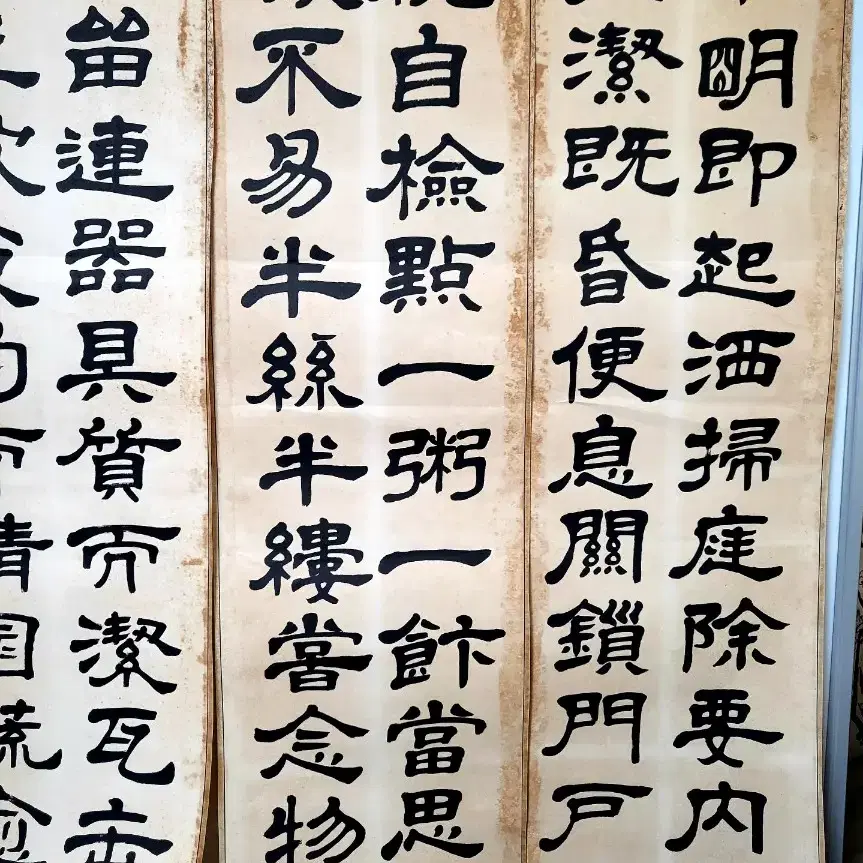 明即起洒掃庭除要內
潔既昏便息關鎖門戶
自檢點一粥一飰當思
不易半絲半縷當念物
留連器具質而潔瓦缶